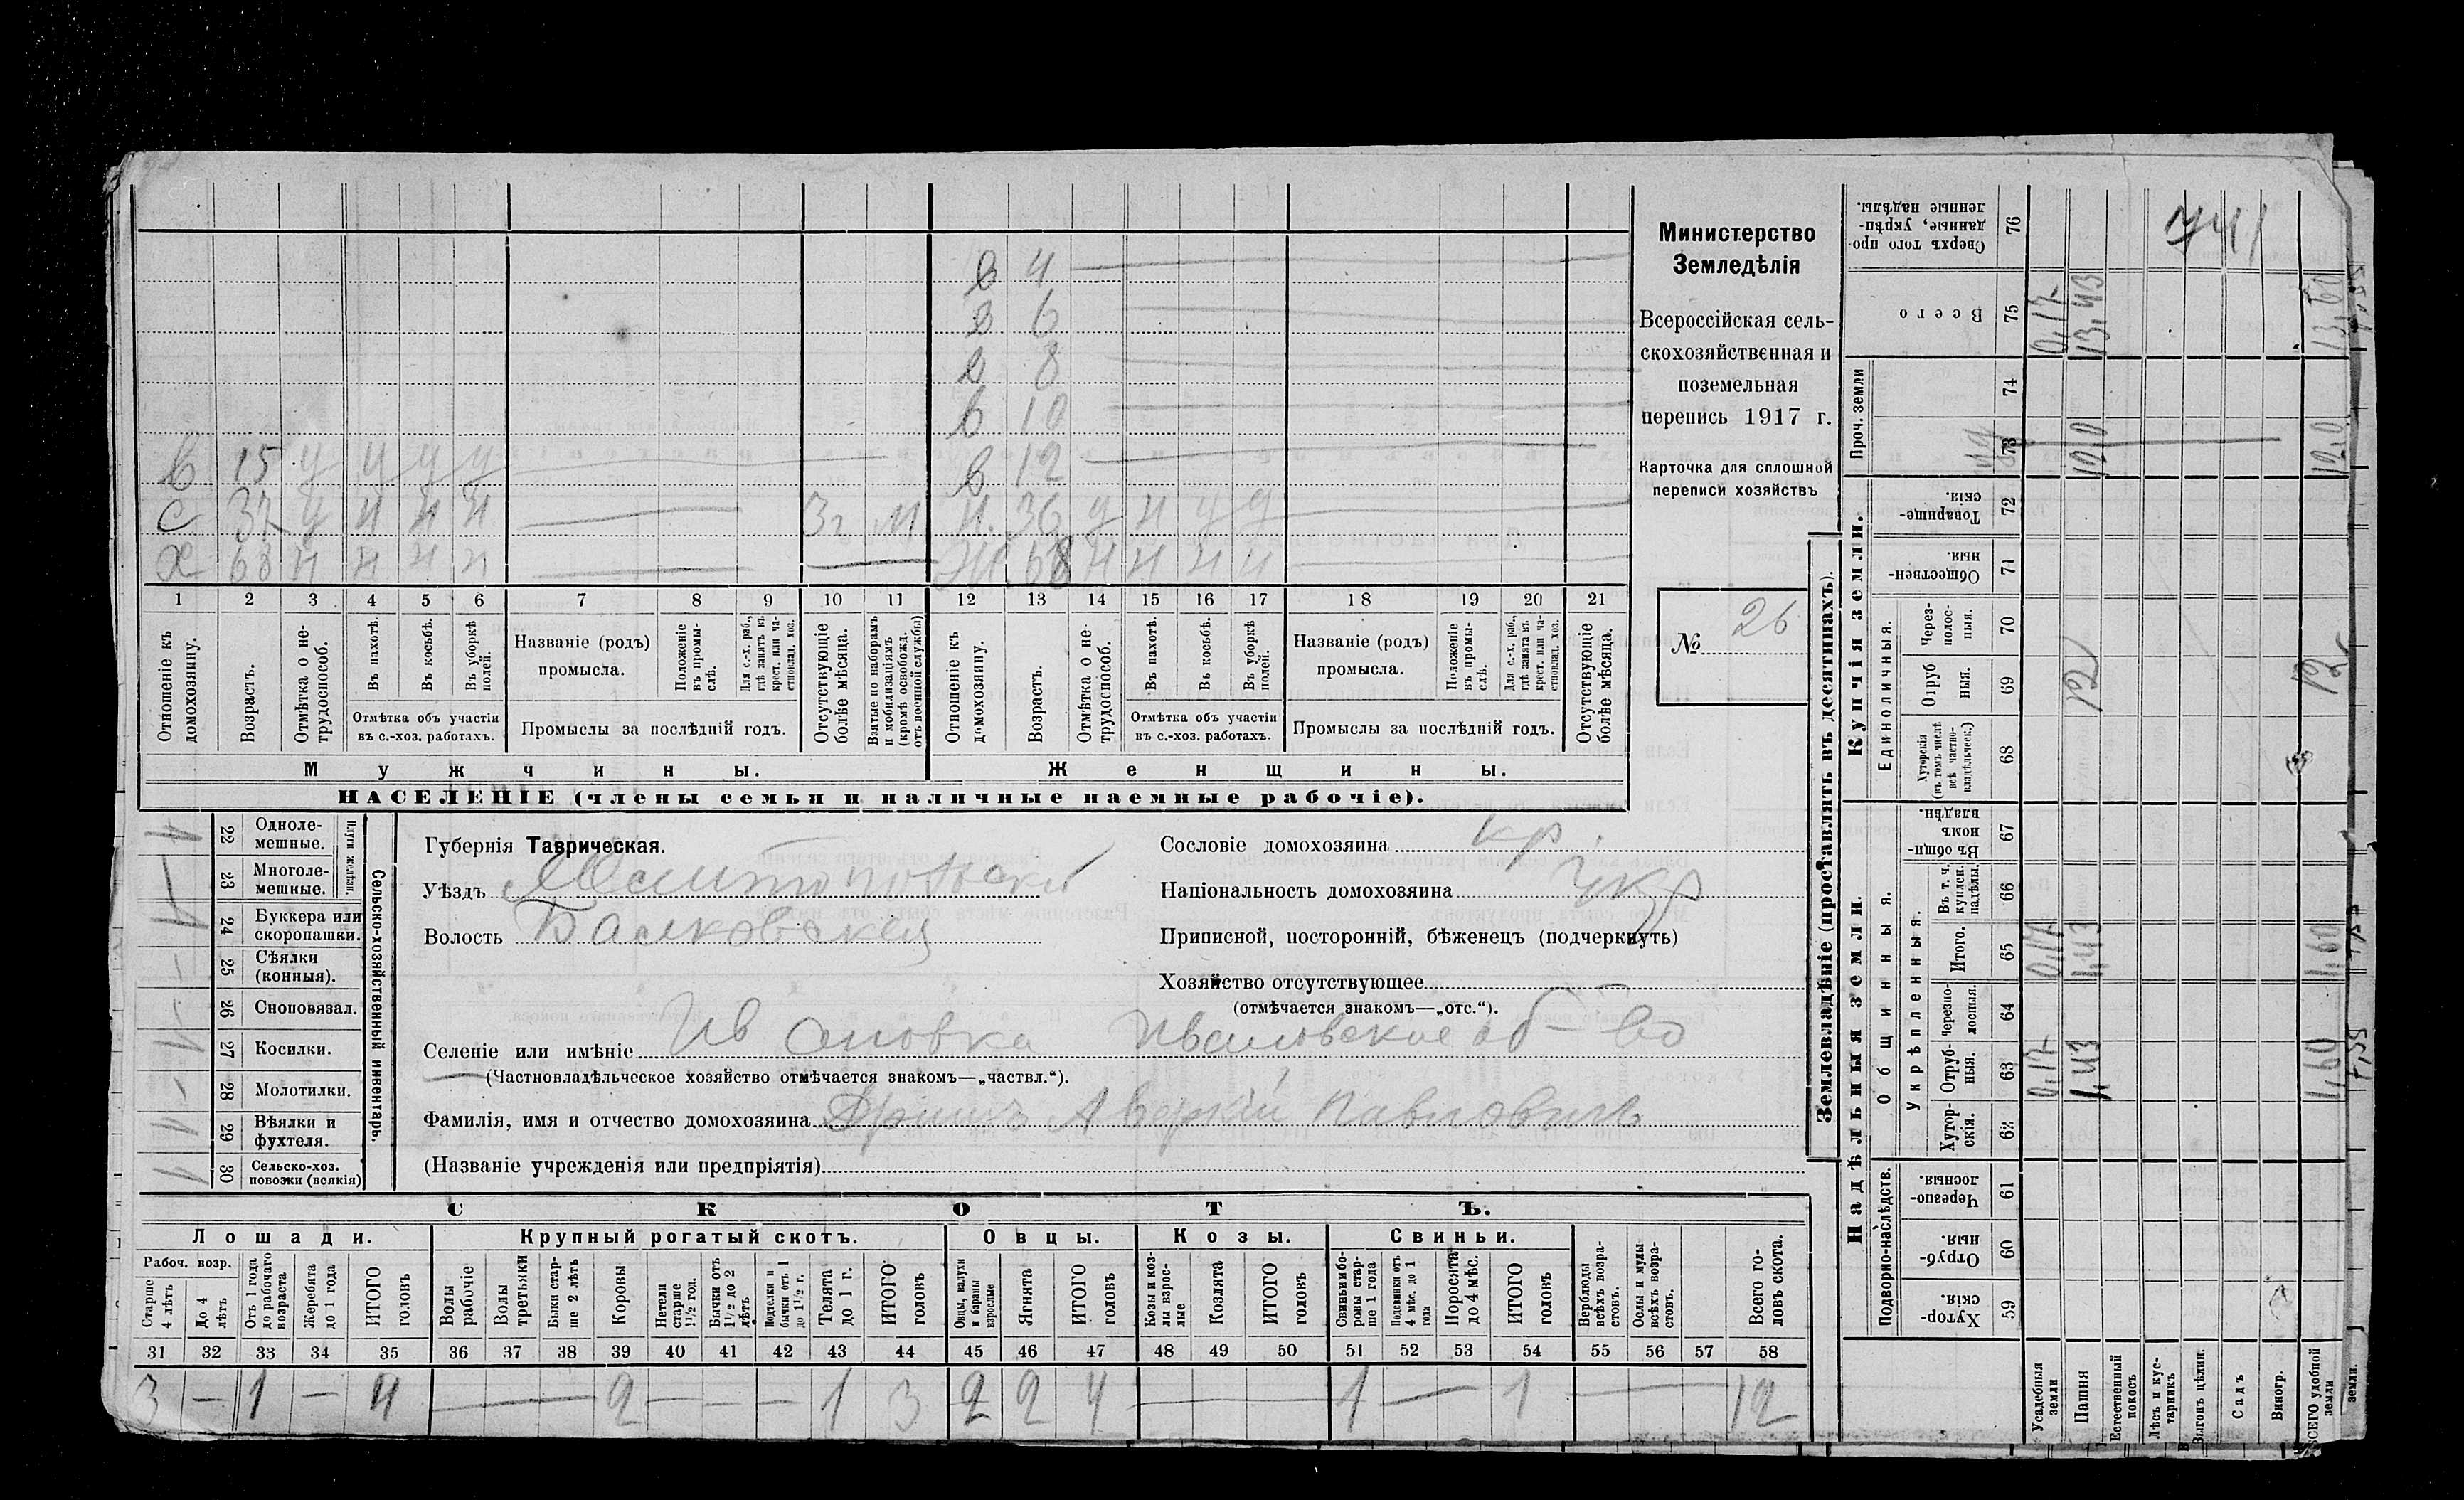 в 4
в 6
в 8
в 10
в 15 у у у у в 12
с 37 у н н н 3 г. м н. 36 у н у у
х 68 н н н н ж. 68 н н н н
1 2 3 4 5 6 7 8 9 10 11 12 13 14 15 16 17 18 19 20 21
Отношеніе къ домохозяину.
Возрастъ.
Отмѣтка о не-трудоспособ.
Въ пахотѣ.
Въ косьбѣ.
Въ уборкѣ полей.
Отмѣтка объ участіи
въ с.-хоз. работахъ.
Названіе (родъ)
промысла.
Положеніе въ промы-слѣ.
Для с.-х. раб., гдѣ занятъ въ крест. или ча-стновлад. хоз.
Промыслы за послѣдній годъ.
Отсутствующіе болѣе мѣсяца.
Взятые по наборамъ и мобилизаціямъ (кромѣ освобожд. отъ военной службы)
Отношеніе къ домохозяину.
Возрастъ.
Отмѣтка о не-трудоспособ.
Въ пахотѣ.
Въ косьбѣ.
Въ уборкѣ полей.
Отмѣтка объ участіи
въ с.-хоз. работахъ.
Названіе (родъ)
промысла.
Положеніе въ промы-слѣ.
Для с.-х. раб., гдѣ занята въ крест. или ча-стновлад. хоз.
Промыслы за послѣдній годъ.
Отсутствующіе болѣе мѣсяца.
Мужчины. Женщины.
НАСЕЛЕНІЕ (члены семьи и наличные наемные рабочіе).
Министерство
Земледѣлія
Всероссійская сель-
скохозяйственная и
поземельная
перепись 1917 г.
Карточка для сплошной
переписи хозяйствъ
№ 26
22 Одноле-мешные.
23 Многоле-мешные.
Плуги желѣзн.
24 Буккера или скоропашки.
25 Сѣялки (конныя).
26 Сноповязал.
27 Косилки.
28 Молотилки.
29 Вѣялки и фухтеля.
30 Сельско-хоз. повозки (всякія)
Сельско-хозяйственный инвентарь.
Губернія Таврическая.
Уѣздъ Мелитопольскій
Волость Балковская
Сословіе домохозяина кр.
Національность домохозяина укр
Приписной, посторонній, бѣженецъ (подчеркнуть)
Хозяйство отсутствующее
(отмѣчается знакомъ—„отс.“).
Селеніе или имѣніе Ивановка Ивановское об-во
(Частновладѣльческое хозяйство отмѣчается знакомъ—„частвл.“).
Фамилія, имя и отчество домохозяина Аверкій Павловичъ
(Названіе учрежденія или предпріятія)
СКОТЪ.
Лошади. Крупный рогатый скотъ. Овцы. Козы. Свиньи.
Рабоч. возр.
Старше 4 лѣтъ
До 4 лѣтъ
Отъ 1 года до рабочаго возраста
Жеребята до 1 года
ИТОГО головъ
Волы рабочіе
Волы третьяки
Быки стар-ше 2 лѣтъ
Коровы
Нетели старше 1½ год.
Бычки отъ 1½ до 2 лѣтъ
Подтелки и бычки отъ 1 до 1½ г.
Телята до 1 г.
ИТОГО головъ
Овцы, валухи и бараны взрослые
Ягнята
ИТОГО головъ
Козы и коз-лы взрос-лые
Козлята
ИТОГО головъ
Свиньи и бо-ровы стар-ше 1 года
Подсвинки отъ 4 мѣс. до 1 года
Поросята до 4 мѣс.
ИТОГО головъ
Верблюды всѣхъ возра-стовъ.
Ослы и мулы всѣхъ возра-стовъ.
Всего го-ловъ скота.
31 32 33 34 35 36 37 38 39 40 41 42 43 44 45 46 47 48 49 50 51 52 53 54 55 56 57 58
3 — 1 — 4 — 2 — — — 1 3 2 2 4 — 1 — 1 — 12
Землевладѣніе (проставлять въ десятинахъ).
Купчія земли.
Надѣльныя земли.
Сверхъ того про-данные, укрѣп-ленные надѣлы. 76
741
Всего 75 0,17 13,43 13,60
Проч. земли 74
73 12,0 12,0
Товарище-скія. 72
Обществен-ныя. 71
Единоличныя.
Через-полос-ныя. 70
Отруб ныя. 69 12 12
Хуторскія (въ томъ числѣ всѣ частно-владѣльческ.) 68
Въ общи-номъ владѣн. 67
Общинныя.
Укрѣпленныя.
Въ т. ч. куплен. надѣлы. 66
Итого. 65 0,17 1,43 1,60
Черезпо-лосныя. 64
Отруб-ныя. 63 0,17 1,43 1,60
Хутор-скія. 62
Подворно-наслѣдств.
Черезпо-лосныя. 61
Отруб-ныя. 60
Хутор-скія. 59
Усадебныя земли
Пашня
Естественный покосъ
Лѣсъ и кус-тарникъ
Выгонъ цѣлин.
Садъ
Виногр.
ВСЕГО удобной земли
земли.